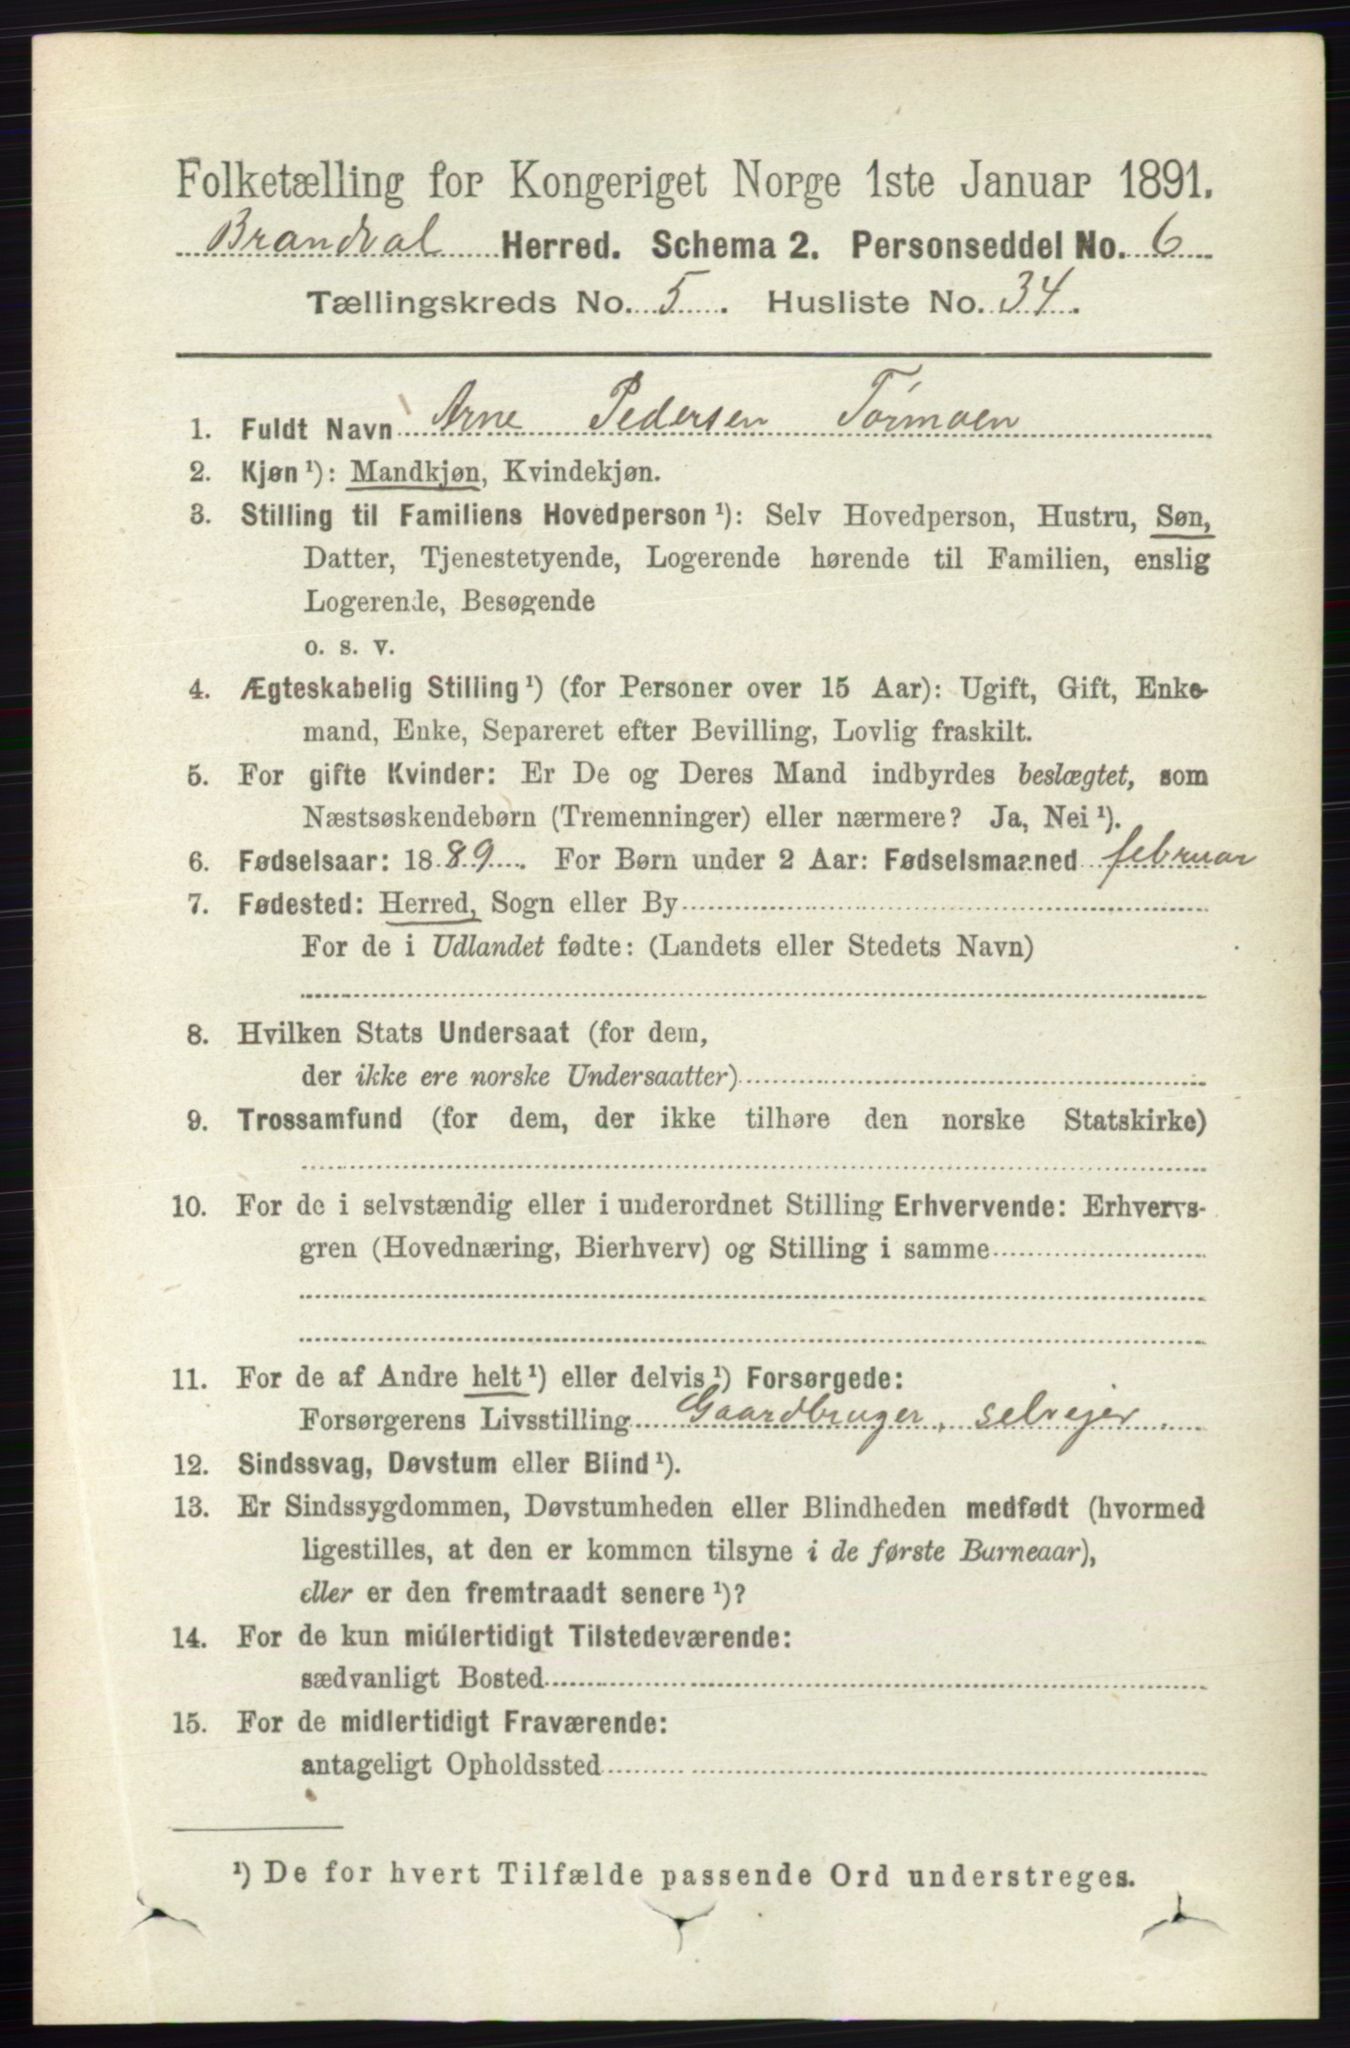 Folketælling for Kongeriget Norge 1ste Januar 1891.
Brandval Herred. Schema 2. Personseddel No. 6
Tællingskreds No. 5. Husliste No. 34.
1. Fuldt Navn Arne Pedersen Tørmoen
2. Kjøn ¹): Mandkjøn, Kvindekjøn.
3. Stilling til Familiens Hovedperson ¹): Selv Hovedperson, Hustru, Søn,
Datter, Tjenestetyende, Logerende hørende til Familien, enslig
Logerende, Besøgende
o. s. v.
4. Ægteskabelig Stilling ¹) (for Personer over 15 Aar): Ugift, Gift, Enke-
mand, Enke, Separeret efter Bevilling, Lovlig fraskilt.
5. For gifte Kvinder: Er De og Deres Mand indbyrdes beslægtet, som
Næstsøskendebørn (Tremenninger) eller nærmere? Ja, Nei ¹).
6. Fødselsaar: 1889. For Børn under 2 Aar: Fødselsmaaned februar
7. Fødested: Herred, Sogn eller By
For de i Udlandet fødte: (Landets eller Stedets Navn)
8. Hvilken Stats Undersaat (for dem,
der ikke ere norske Undersaatter)
9. Trossamfund (for dem, der ikke tilhøre den norske Statskirke)
10. For de i selvstændig eller i underordnet Stilling Erhvervende: Erhvervs-
gren (Hovednæring, Bierhverv) og Stilling i samme
11. For de af Andre helt ¹) eller delvis ¹) Forsørgede:
Forsørgerens Livsstilling Gaardbruger, selvejer.
12. Sindssvag, Døvstum eller Blind ¹).
13. Er Sindssygdommen, Døvstumheden eller Blindheden medfødt (hvormed
ligestilles, at den er kommen tilsyne i de første Burneaar),
eller er den fremtraadt senere ¹)?
14. For de kun midlertidigt Tilstedeværende:
sædvanligt Bosted
15. For de midlertidigt Fraværende:
antageligt Opholdssted
¹) De for hvert Tilfælde passende Ord understreges.